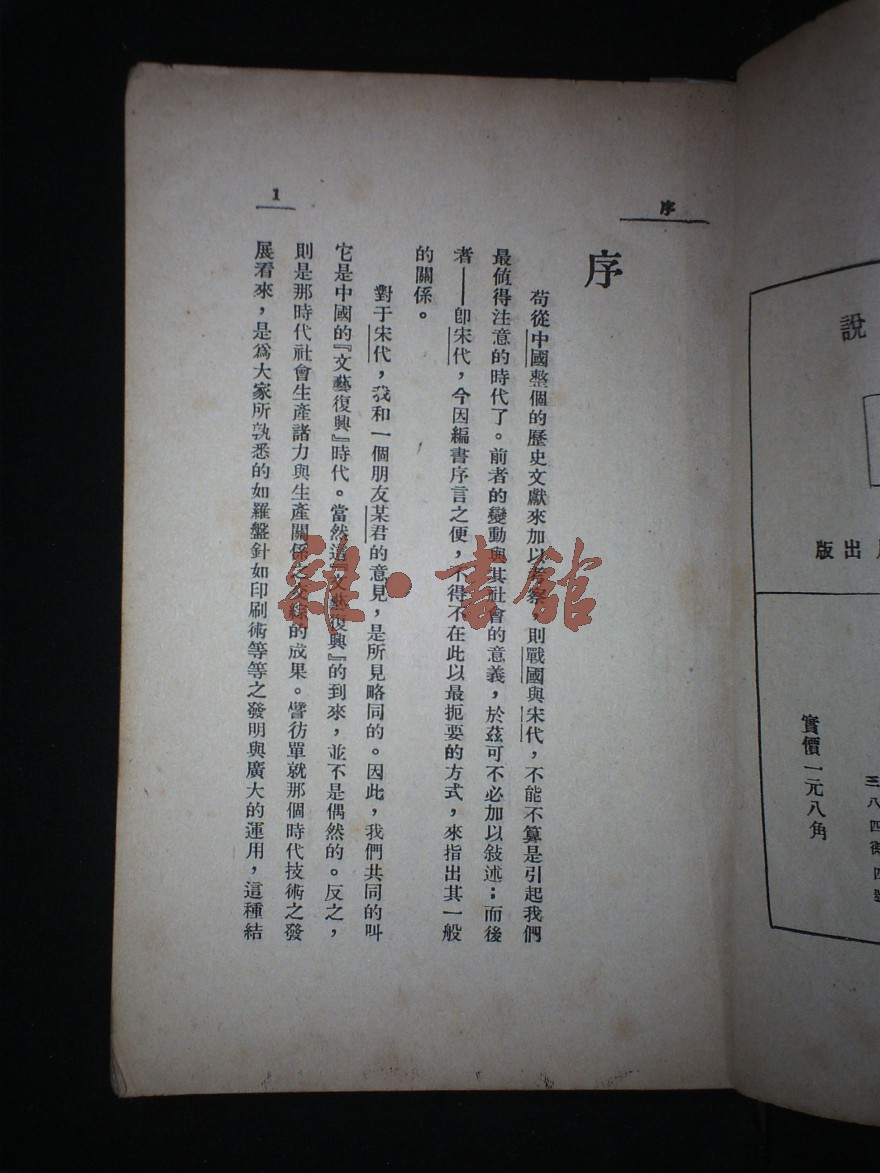 序
序
苟從中國整個的歷史文獻來加以考察，則戰國與宋代，不能不算是引起我們
最值得注意的時代了。前者的變動與其社會的意義，於茲可不必加以敍述；而後
者——卽宋代，今因編書序言之便，不得不在此以最扼要的方式，來指出其一般
的關係。
對于宋代，我和一個朋友某君的意見，是所見略同的。因此，我們共同的叫
它是中國的『文藝復興』時代。當然這『文藝復興』的到來，並不是偶然的。反之，
則是那時代社會生產諸力與生產關係之交綜的成果。譬彷單就那個時代技術之發
展看來，是爲大家所孰悉的如羅盤針如印刷術等等之發明與廣大的運用，這種結
1
說
出版
實價一元八角
三八四街四號
雜·書館